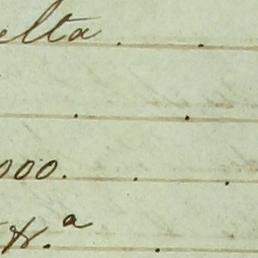 elta . .
. .
000. . .
&.ª .